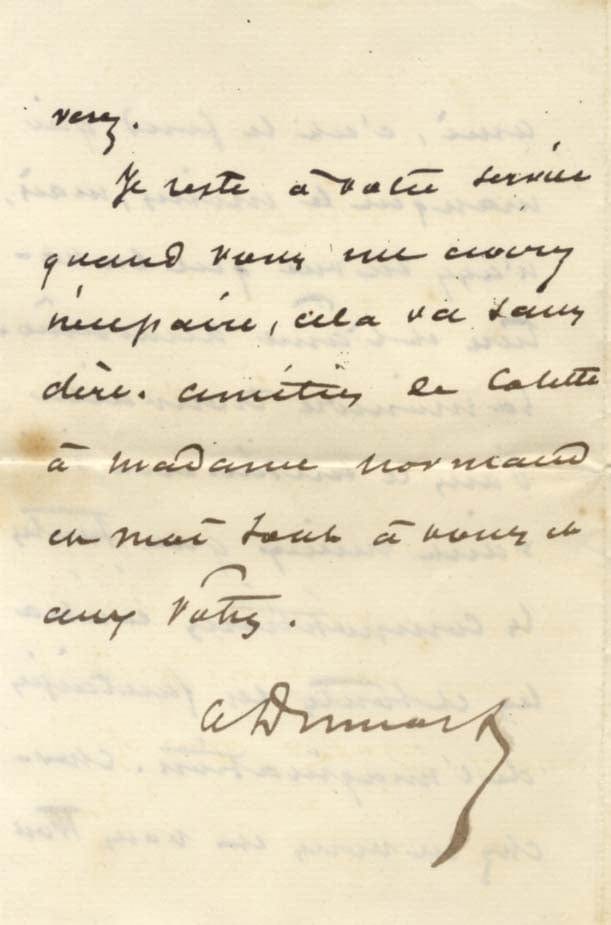 verez.
Je reste à votre service
quand vous me
nécessaire, cela va sans
dire. amitiés de Colette
à madame Normand
et moi tout à vous et
aux vôtres.
A Dumas f